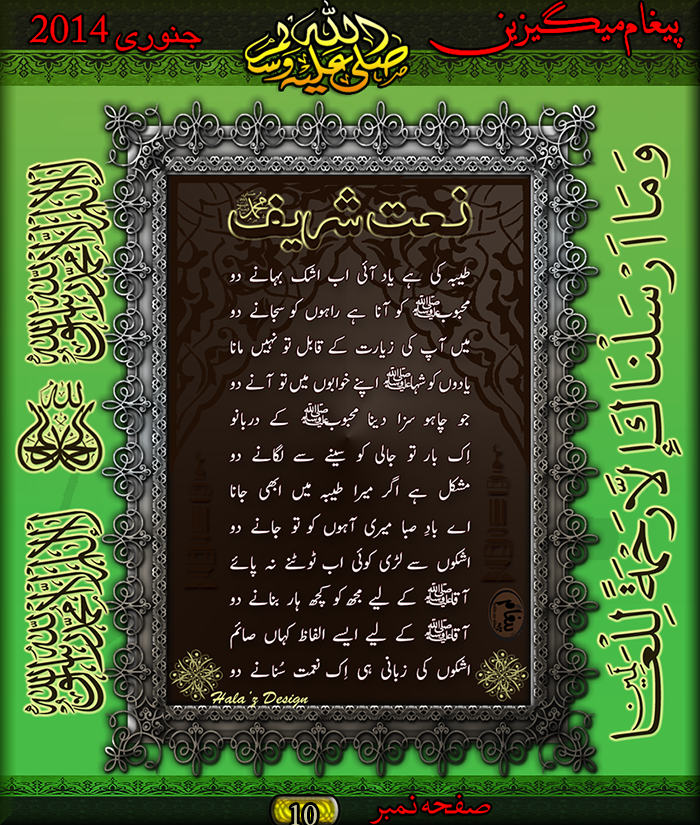 پیغام میگیزین
صلی اللہ علیہ وسلم
جنوری 2014
نعت شریف
محمد ﷺ
طیبہ کی ہے یاد آئی اب اشک بہانے دو
محبوبﷺ کو آنا ہے راہوں کو سجانے دو
میں آپ کی زیارت کے قابل تو نہیں مانا
یادوں کو شہاﷺ اپنے خوابوں میں تو آنے دو
جو چاہو سزا دینا محبوبﷺ کے دربانو
اِک بار تو جالی کو سینے سے لگانے دو
مشکل ہے اگر میرا طیبہ میں ابھی جانا
اے بادِ صبا میری آہوں کو تو جانے دو
اشکوں سے لڑی کوئی اب ٹوٹنے نہ پائے
آقاﷺ کے لیے مجھ کو کچھ ہار بنانے دو
آقاﷺ کے لیے ایسے الفاظ کہاں صائم
اشکوں کی زبانی ہی اِک نعمت سُنانے دو
پیغام
Hala'z Design
وَمَا اَرْسَلْنَاكَ اِلَّا رَحْمَةً لِّلْعٰلَمِيْنَ
لا اله الا الله محمد رسول الله
الله
لا اله الا الله محمد رسول الله
صفحہ نمبر
10